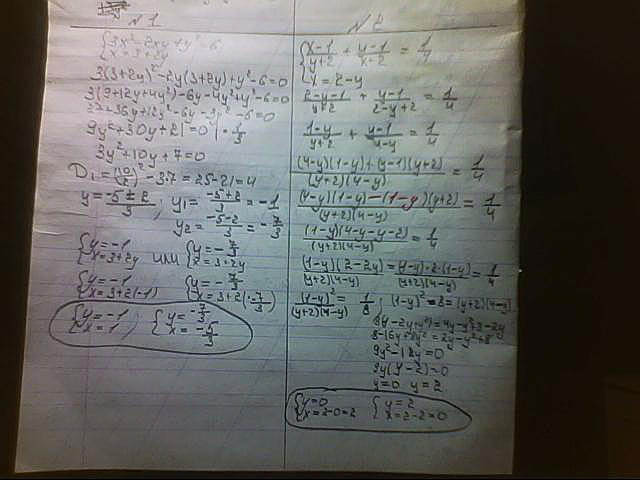 №1
{3x²-2xy+y²=6
{x=3+2y
3(3+2y)²-2y(3+2y)+y²-6=0
3(9+12y+4y²)-6y-4y²+y²-6=0
27+36y+12y²-6y-3y²-6=0
9y²+30y+21=0 |·1/3
3y²+10y+7=0
D₁=(10/2)²-3·7=25-21=4
y=(-5±2)/3; y₁=(-5+2)/3=-1
y₂=(-5-2)/3=-7/3
{y=-1 или {y=-7/3
{x=3+2y {x=3+2y
{y=-1 {y=-7/3
{x=3+2(-1) {x=3+2(-7/3)
{y=-1 {y=-7/3
{x=1; {x=-5/3
№2
{(x-1)/(y+2)+(y-1)/(x+2)=1/4
{x=2-y
(2-y-1)/(y+2)+(y-1)/(2-y+2)=1/4
(1-y)/(y+2)+(y-1)/(4-y)=1/4
((4-y)(1-y)+(y-1)(y+2))/((y+2)(4-y))=1/4
((4-y)(1-y)-(1-y)(y+2))/((y+2)(4-y))=1/4
((1-y)(4-y-y-2))/((y+2)(4-y))=1/4
((1-y)(2-2y))/((y+2)(4-y))=((1-y)·2·(1-y))/((y+2)(4-y))=1/4
(1-y)²/((y+2)(4-y))=1/8; (1-y)²·8=(y+2)(4-y)
8(1-2y+y²)=4y-y²+8-2y
8-16y+8y²=2y-y²+8
9y²-18y=0
9y(y-2)=0
y=0 y=2
{y=0 {y=2
{x=2-0=2 {x=2-2=0